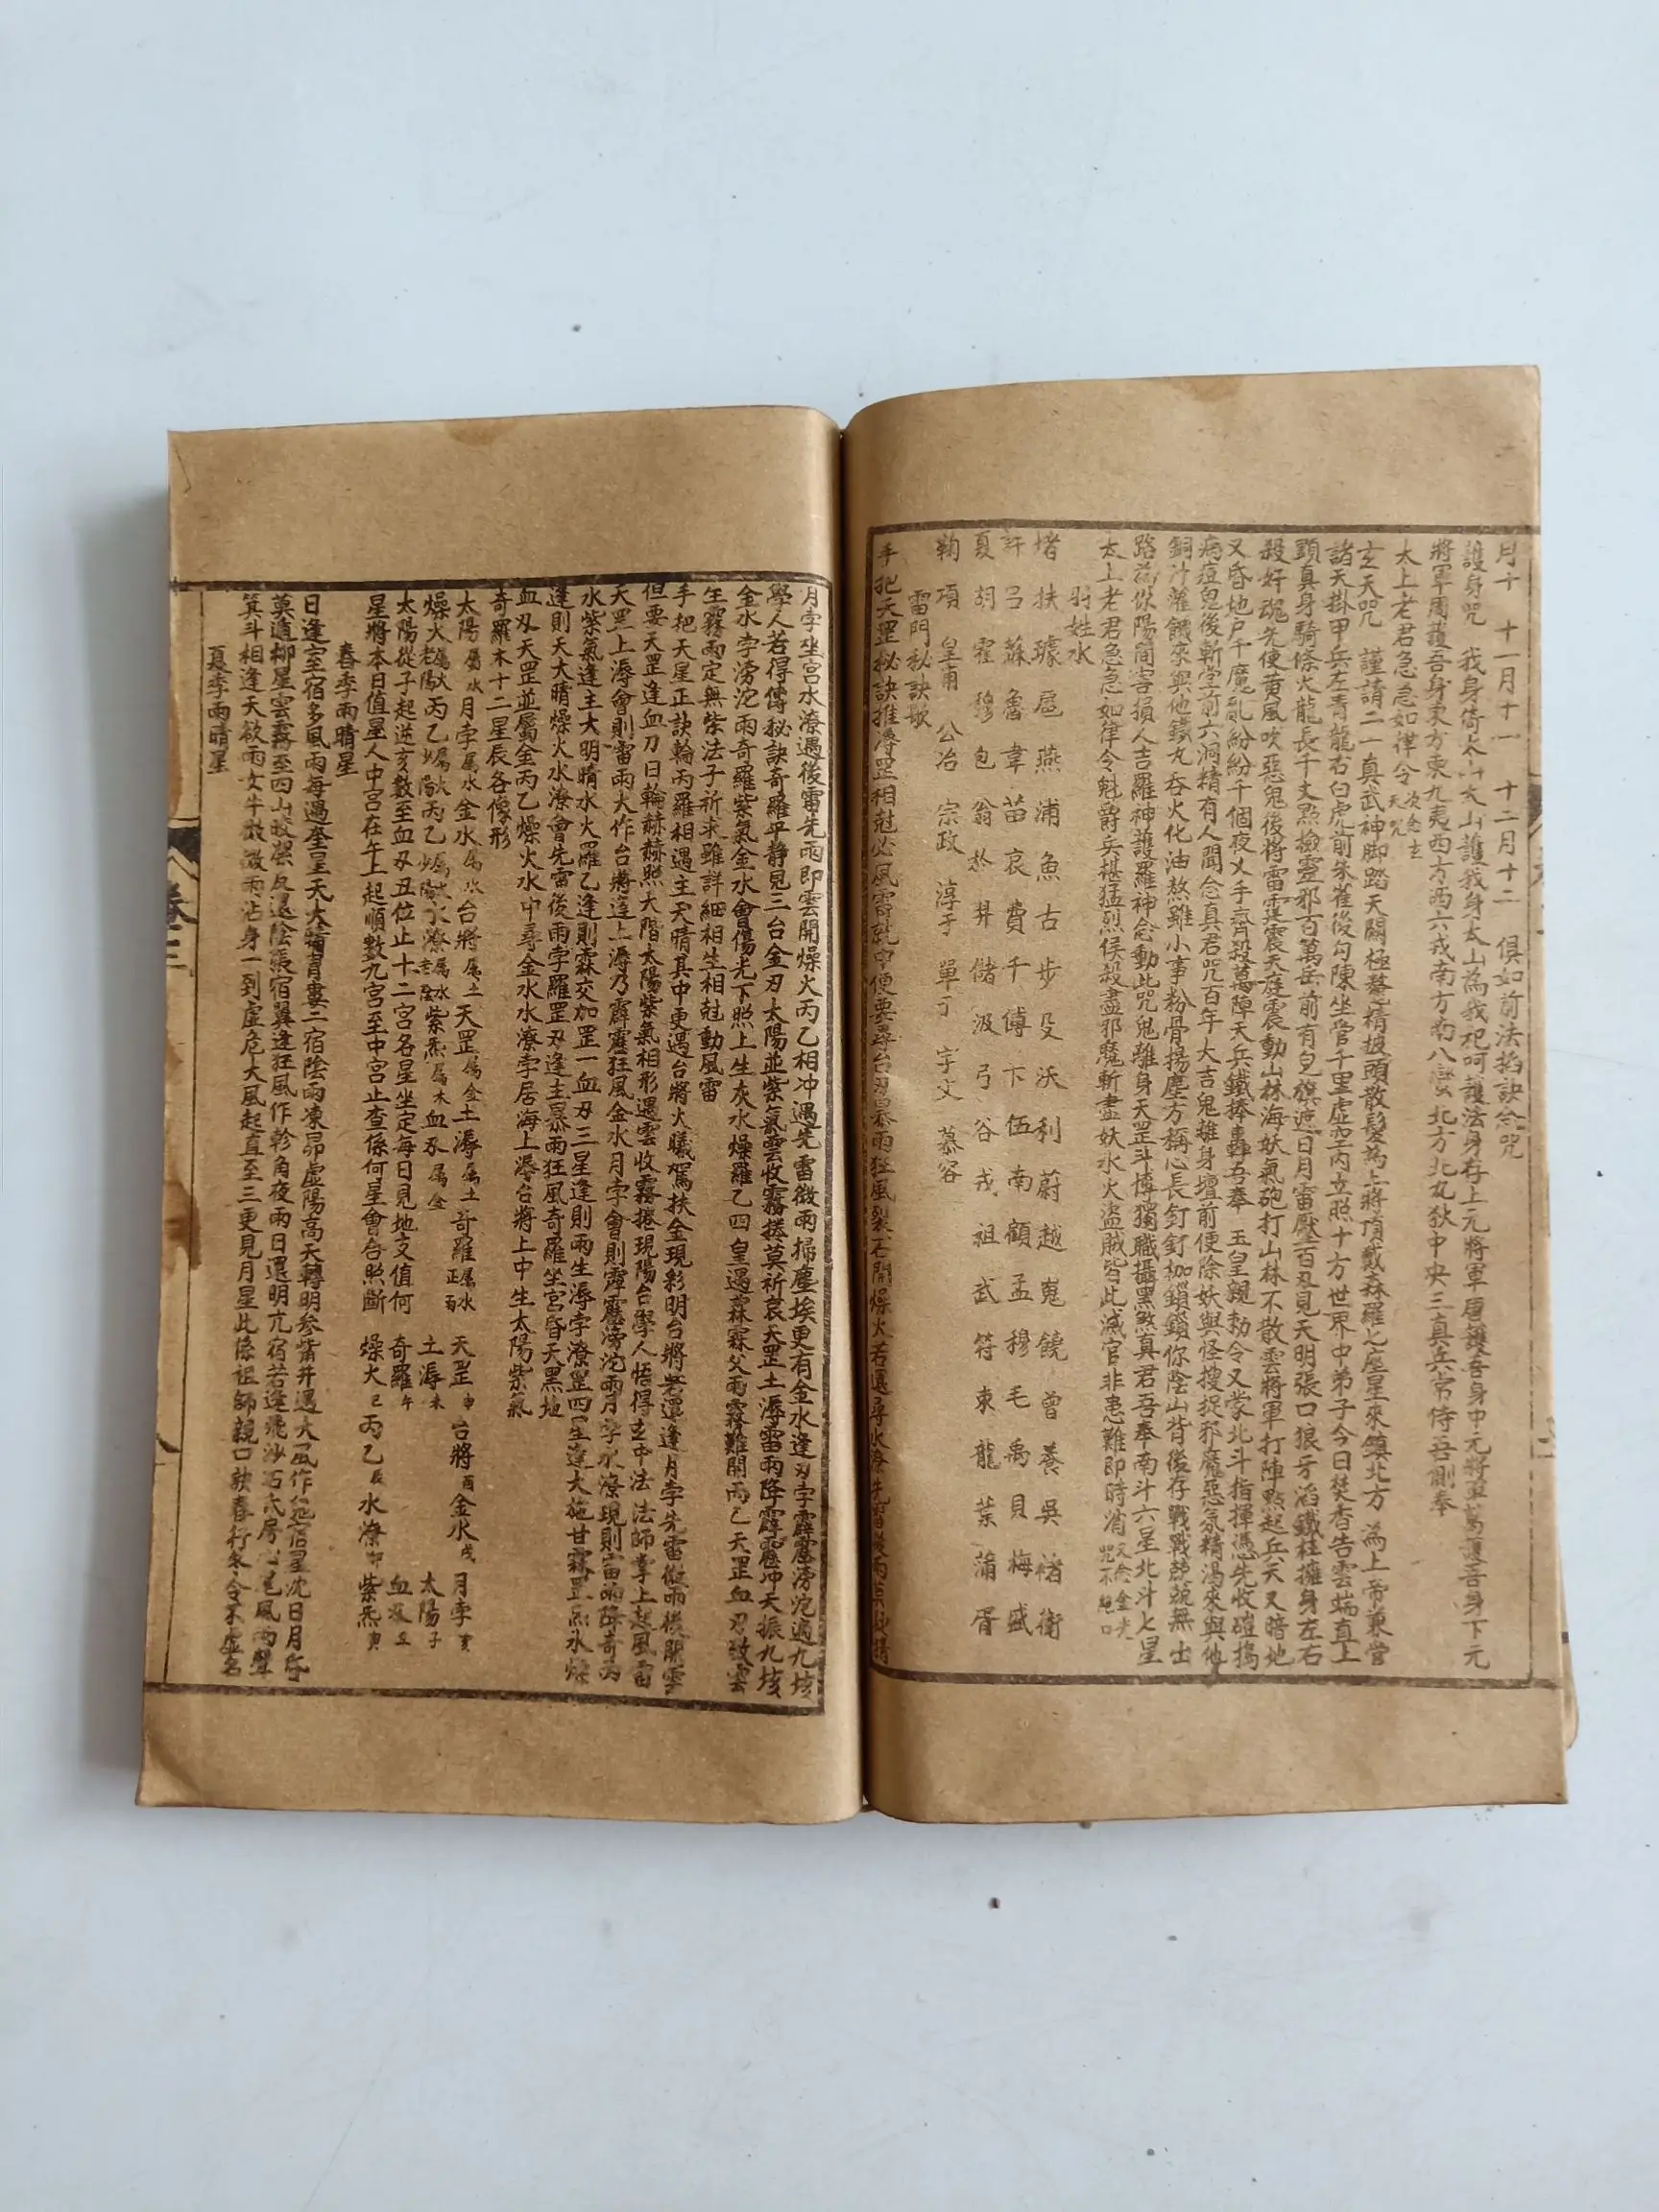 月十　十一月十一　十二月十二　俱如前法掐訣念咒
護身咒　我身倚太山太山護我身太山為我祀呵護法身存上元將軍唐護吾身中元將軍葛護吾身下元
將軍周護吾身東方東九夷西方西六戎南方南八蠻北方北九狄中央三真兵常侍吾側奉
太上老君急急如律令 次念玄天咒
玄天咒　謹請二一真武神脚踏天關極整精披頭散髮為上將頂戴森羅七座星來鎮北方　為上帝兼管
諸天掛甲兵左青龍右白虎前朱雀後勾陳坐管千里虛空內立照十方世界中弟子今日焚香告雲端直上
顯真身騎條火龍長千丈點撿靈邪百萬岳前有皂旗遮日月雷壓百丑見天明張口狼牙滔鐵柱擁身左右
殺奸魂先使黃風吹惡鬼後將雷霆震天庭震動山林海妖氣砲打山林不散雲將軍打陣點起兵天又暗地
又昏地户千魔亂紛紛千個夜乂手齊殺萬障天兵鐵捧轟吾奉　玉皇親勅令又蒙北斗指揮憑先收磓搗
病瘟鬼後斬堂前六洞精有人聞念真君咒百年大吉鬼離身壇前便除妖與怪搜捉邪魔惡氛精渴來與他
銅汁灌餓來與他鐵丸吞火化油熬雖小事粉骨揚塵方稱心長釘釘枷鎖鎖你陰山背後存戰戰兢兢無出
路為你陽間害損人吉羅神護羅神念動此咒鬼離身天罡斗博獨職攝黑煞真君吾奉南斗六星北斗七星
太上老君急急如律令魁爵兵堪猛烈侯殺盡邪魔斬盡妖水火盜賊皆此滅官非患難即時消 又念金光咒不絕口
羽姓水
褚扶璩扈燕浦魚古步殳沃利蔚越嵬饒曾養吳褚衛
許呂蘇魯韋苗哀費千傅卞伍南顧孟穆毛禹貝梅盛
夏胡霍穆包翁於羿儲汲弓谷戎祖武符東龍葉蒲胥
鞠項　皇甫　公冶　宗政　淳于　單于　宇文　慕容
雷門秘訣歌
手把天罡秘訣推溽罡相尅必風雷就中便要尋台刃暴雨狂風裂石開燥火若還尋水潦先雷後雨莫疑猜
月孛坐宮水潦遇後雷先雨即雲開燥火丙乙相冲遇先雷微雨掃塵埃更有金水逢刃孛霹靂滂沱遍九垓
學人若得傳秘訣奇羅平静見三台金刃太陽並紫氣雲收霧捲莫祈哀天罡土溽雷雨降霹靂冲天振九垓
金水孛滂沱雨奇羅紫氣金水會傷光下照上生灰水燥羅乙四皇遇霖霖父雨霧難開雨乙天罡血刃致雲
生霧雨定無柴法子祈求雖詳細相生相尅動風雷
手把天星正訣輪丙羅相遇主天晴其中更遇台將火曦駕扶金現彩明台將若還逢月孛先雷後雨後開雲
但要天罡逢血刀日輪赫赫照大階太陽紫氣相形遇雲收霧捲現陽台學人悟得玄中法法師掌上起風雷
天罡上溽會則雷雨大作台將逢上溽乃霹靂狂風金水月孛會則霹靂滂沱雨月孛水潦現則雷雨降奇丙
水紫氣逢主大明晴水火羅乙逢則霖交加罡一血刃三星逢則雨生溽孛潦罡四星逢大施甘霖罡炁水燥
逢則天大晴燥火水潦會先雷後雨孛羅罡刃逢主暴雨狂風奇羅坐宮昏天黑地
血刃天罡並屬金丙乙燥火水中尋金水水潦孛居海上溽台將上中生太陽紫氣
奇羅木十二星辰各像形
太陽屬水月孛屬水金水屬水台將屬土天罡屬金土溽屬土奇羅屬水正丙　天罡申　台將酉金水戌　月孛亥
燥火屬火老陽丙乙屬火少陽丙乙少陽屬火水潦屬水老陰紫炁屬木血刃屬金　土溽未　太陽子
太陽從子起逆亥數至血刃丑位止十二宮各星坐定每日見地支值何　奇羅午　血刃丑
星將本日值星人中宮在午上起順數九宮至中宮止查係何星會合照斷　燥火巳丙乙辰水潦卯紫炁寅
春季雨晴星
日逢室宿多風雨每遇奎星天大晴胃婁二宿陰雨凍昴虛陽高天轉明參觜井遇大風作鬼宿星沈日月昏
莫道柳星雲霧至四山被漈反還陰張宿翼逢狂風作軫角夜雨日還明亢宿若逢飛沙石氐房心尾風雨聲
箕斗相逢天欲雨女牛微微雨沾身一到虛危大風起直至三更見月星此係祖師親口訣春行冬令不虛名
夏季雨晴星
卷三